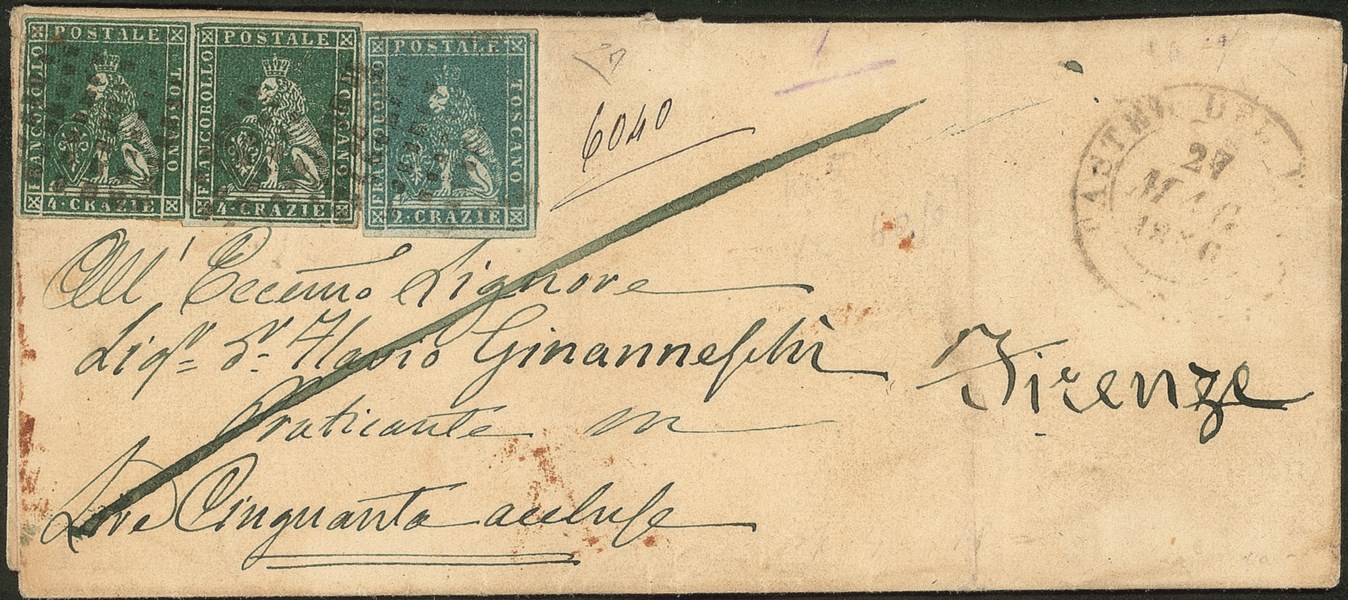 POSTALE
FRANCOBOLLO
TOSCANO
4·CRAZIE
POSTALE
FRANCOBOLLO
TOSCANO
4·CRAZIE
POSTALE
FRANCOBOLLO
TOSCANO
2·CRAZIE
6040
27
MAG
All' Eccemo Signore
Sigr. Dr. Flavio Ginanneschi
Praticante in
Firenze
Lire Cinquanta accluse